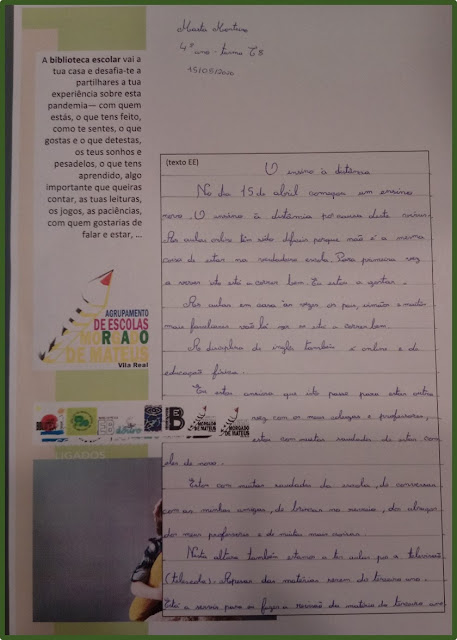 Marta Monteiro
4º ano - turma T8
15/05/2020
A biblioteca escolar vai a
tua casa e desafia-te a
partilhares a tua
experiência sobre esta
pandemia— com quem
estás, o que tens feito,
como te sentes, o que
gostas e o que detestas,
os teus sonhos e
pesadelos, o que tens
aprendido, algo
importante que queiras
contar, as tuas leituras,
os jogos, as paciências,
com quem gostarias de
falar e estar, ...
AGRUPAMENTO
DE ESCOLAS
MORGADO
DE MATEUS
Vila Real
LIGADOS
(texto EE)
O ensino à distância
No dia 15 de abril começou um ensino
novo. O ensino à distância por causa deste vírus.
As aulas online têm sido difíceis porque não é a mesma
coisa de estar na verdadeira escola. Para primeira vez
a nosso ver está a correr bem. Eu estou a gostar.
As aulas em casa às vezes os pais, irmãos e muitos
mais familiares vão lá ver se está a correr bem.
A disciplina de inglês também é online e de
educação física.
Eu estou ansiosa que isto passe para estar outra
vez com os meus colegas e professores,
estou com muitas saudades de estar com
eles de novo.
Estou com muitas saudades da escola, de conversar
com as minhas amigas, de brincar no recreio, dos abraços
dos meus professores e de muitas mais coisas.
Nesta altura também estamos a ter aulas por a televisão
(telescola). Apesar das matérias serem do terceiro ano.
Está a servir para eu fazer a revisão da matéria do terceiro ano
MORGADO
DE MATEUS